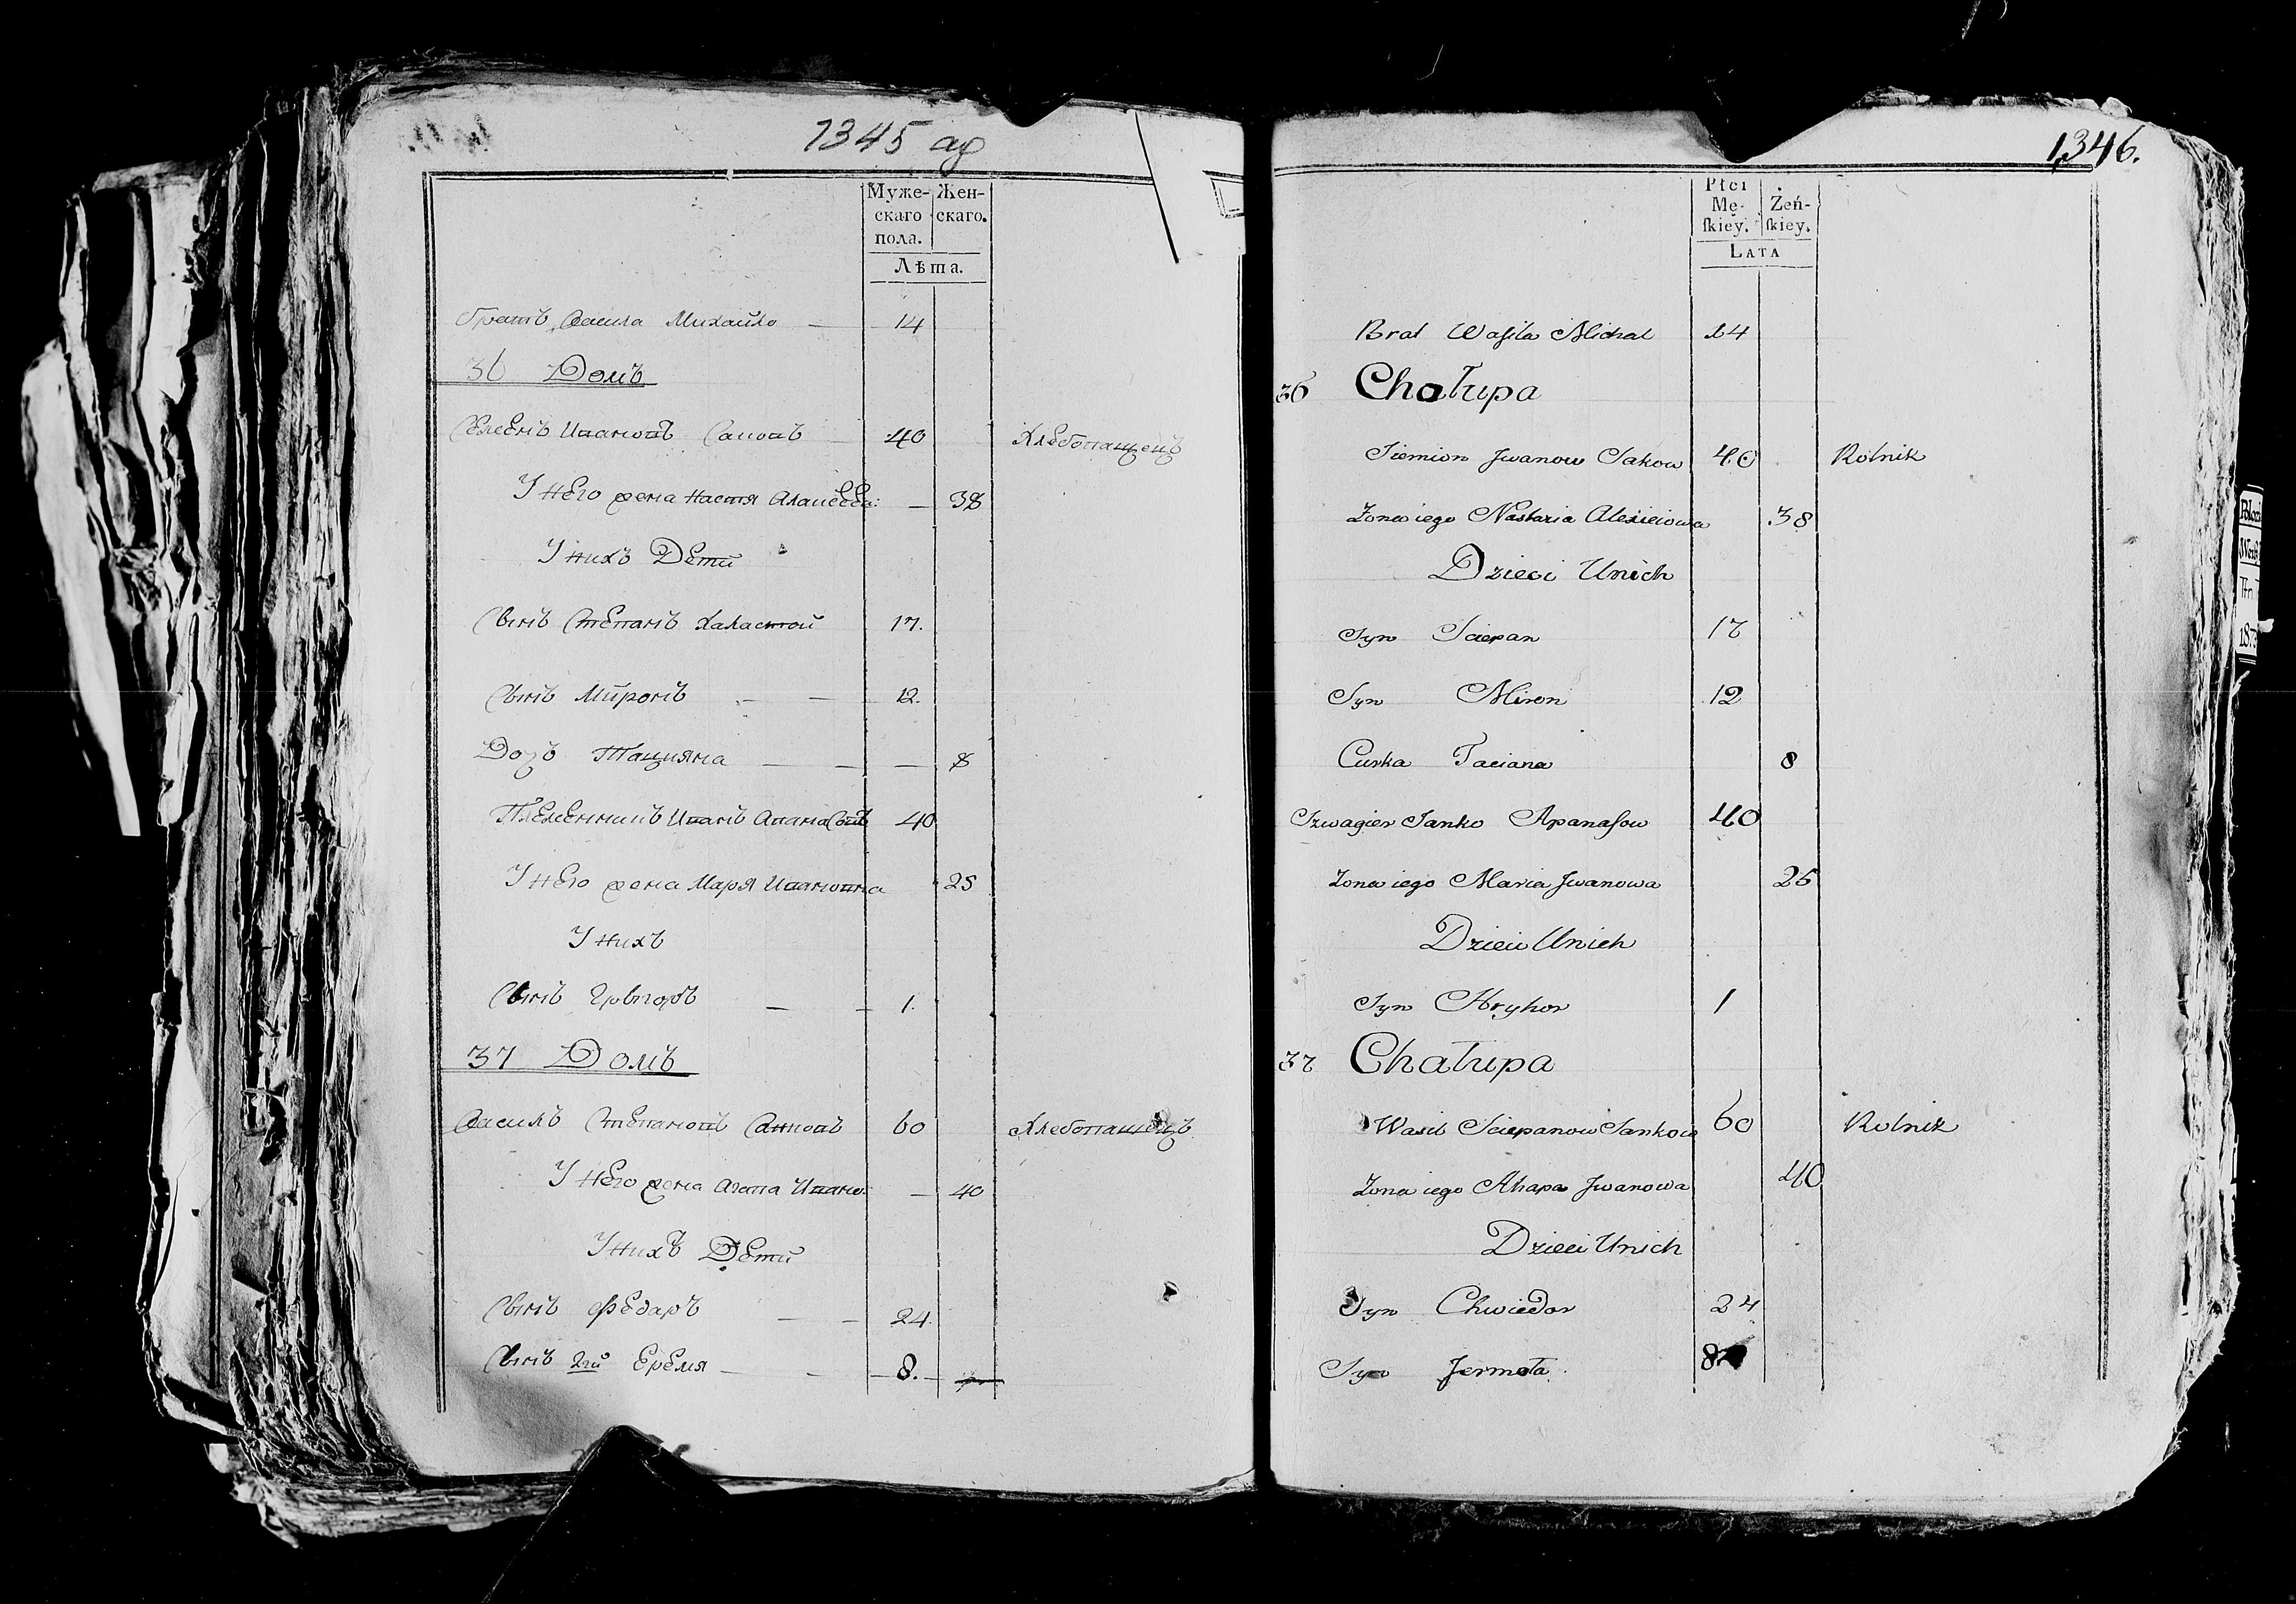 1345 ад
Муже- Жен-
скаго скаго.
пола.
Лѣта.
братъ Василя Михайло — 14
36 Домъ
Семенъ Ивановъ 40 Хлебопащецъ
У него жена Настя — 38
У нихъ Дети
Сынъ Степанъ Халастой 17.
Сынъ Миронъ — — 12.
Доч Тацияна — — — 8
Племенникъ Иванъ Апанасовъ 40
У него жена Маря Ивановна 25
У нихъ
Сынъ — — 1.
37 Домъ
Василь Степановъ 60 Хлебопащецъ
У него жена Агапа Ивано: — 40
У нихъ Дети
Сынъ Федаръ — — 24.
Сынъ 2й Еремя — — 8. —
1346.
Płci
Mę- Żeń-
ſkiey. ſkiey.
LATA
Brat Waſila Michał 14
36 Chałupa
Siemion Jwanow Sakow 40 Rolnik
Zona iego Nastazia Alexieiowa 38
Dzieci Unich
Syn Sciepan 17
Syn Miron 12
Curka Taciana 8
Szwagier Janko Apanaſow 40
Zona iego Maria Jwanowa 25
Dzieci Unich
Syn Hryhor 1
37 Chałupa
Wasil Sciepanow Sankow 60 Rolnik
Zona iego Ahapa Jwanowa 40
Dzieci Unich
Syn Chwiedor 24
Syn Jermoła 8